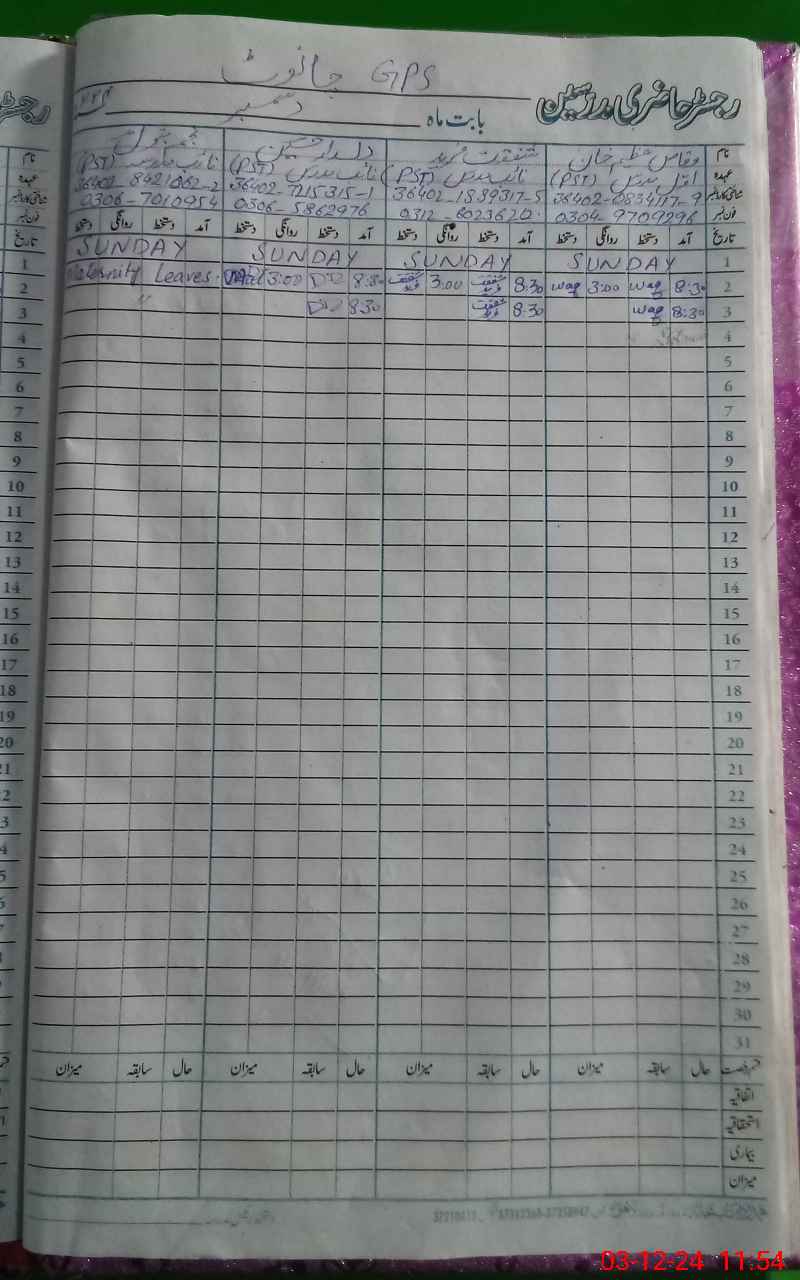 GPS جانوٹ
رجسٹر حاضری مدرسین
بابت ماہ دسمبر
نام وقاص عظیم خان شفقت فرید دلدار حسین نجمہ بتول
عہدہ (PST) نائب مدرس (PST) نائب مدرس (PST) (PST)
شناختی کارڈ نمبر 36402-0834117-9 36402-1889317-5 36402-7215315-1 36402-8421062-2
فون نمبر 0304-9709296 0312-6023620 0306-5862976 0306-7010954
تاریخ آمد دستخط روانگی دستخط آمد دستخط روانگی دستخط آمد دستخط روانگی دستخط آمد دستخط روانگی دستخط
1 SUNDAY SUNDAY SUNDAY SUNDAY
2 8:30 waq 3:00 waq 8:30 3:00 8:30 3:00 Maternity Leaves.
3 8:30 waq 8:30 8:30 "
4
5
6
7
8
9
10
11
12
13
14
15
16
17
18
19
20
21
22
23
24
25
26
27
28
29
30
31
قسم رخصت حال سابقہ میزان حال سابقہ میزان حال سابقہ میزان حال سابقہ میزان
اتفاقیہ
استحقاقیہ
بیماری
میزان
03-12-24 11:54